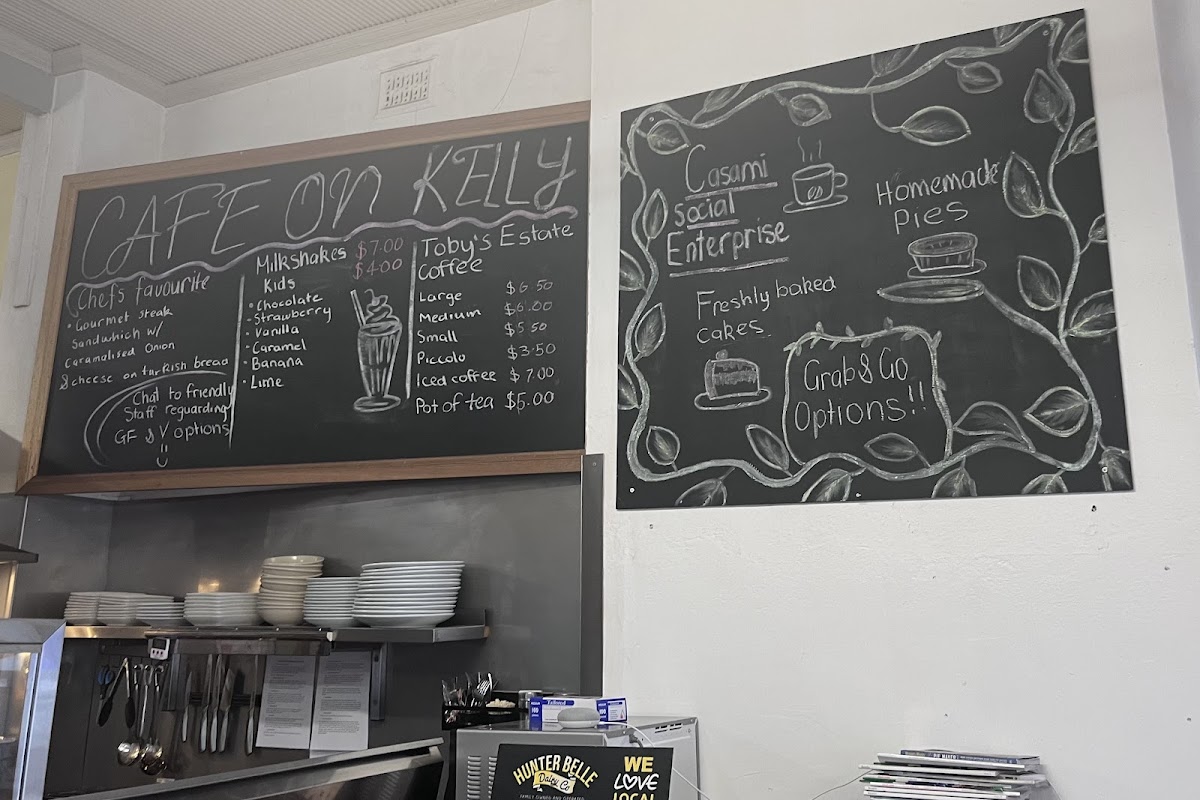 CAFE ON KELLY
Chefs favourite
• Gourmet steak
Sandwhich w/
caramalised onion
& cheese on turkish bread
Chat to friendly
Staff reguarding
GF & V options
Milkshakes $7.00
Kids $4.00
• Chocolate
• Strawberry
• Vanilla
• Caramel
• Banana
• Lime
Toby's Estate
Coffee
Large $6.50
Medium $6.00
Small $5.50
Piccolo $3.50
Iced coffee $7.00
Pot of tea $5.00
Casami
social
Enterprise
Homemade
Pies
Freshly baked
cakes
Grab & Go
Options!!
HUNTER BELLE
Dairy Co
FAMILY OWNED AND OPERATED
WE
LOVE
LOCAL